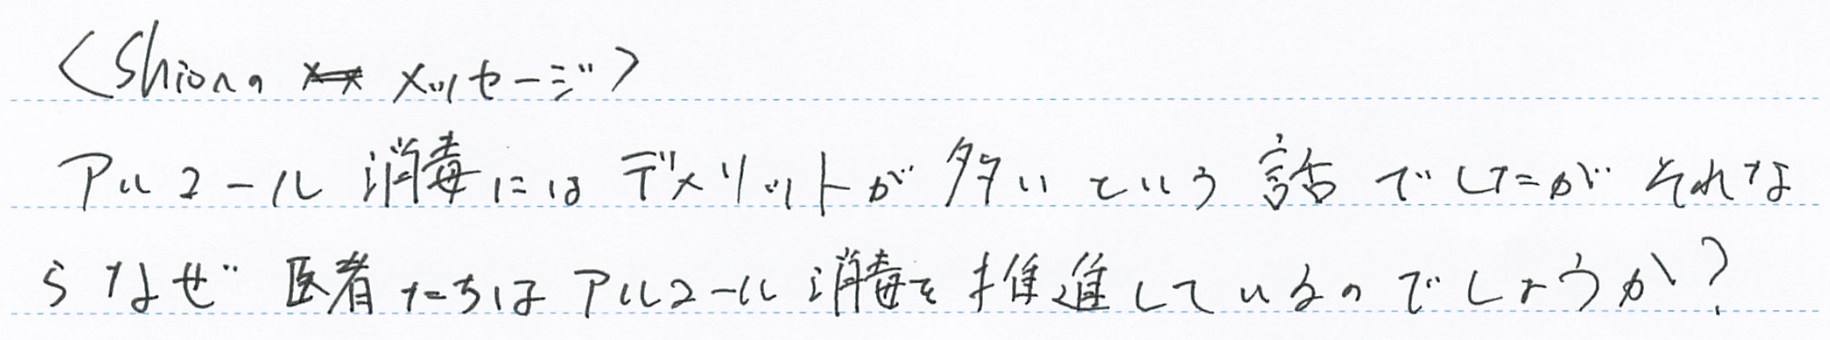 <Shionのメッセージ>
アルコール消毒にはデメリットが多いという話でしたがそれな
らなぜ医者たちはアルコール消毒を推進しているのでしょうか?